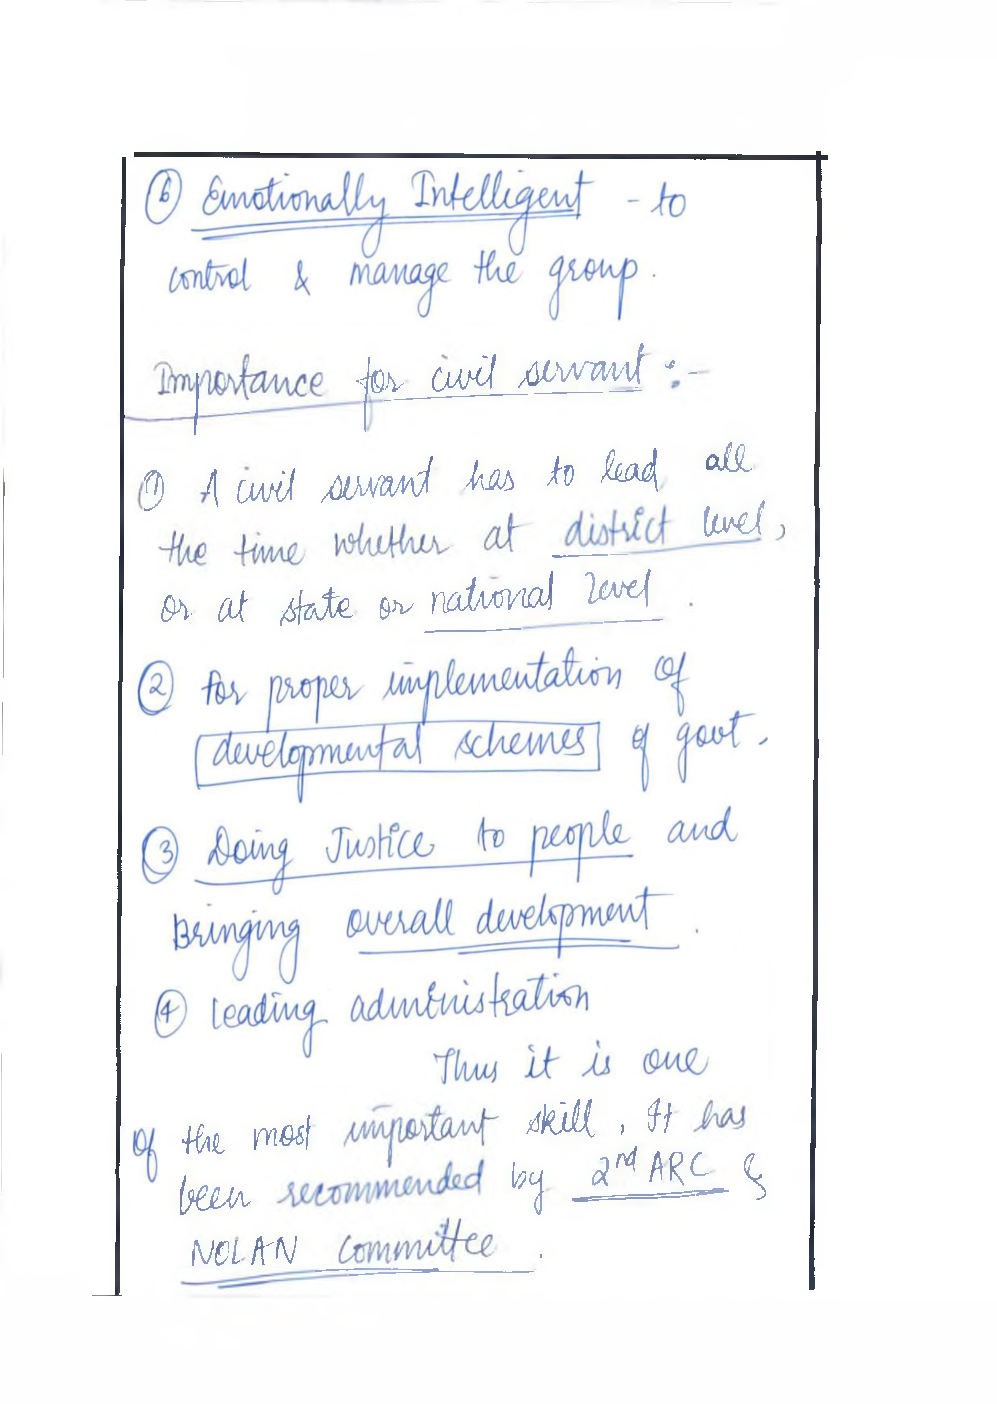 ⑥ Emotionally Intelligent - to
control & manage the group.
Importance for civil servant :-
① A civil servant has to lead all
the time whether at district level,
or at state or national level.
② for proper implementation of
developmental schemes of govt.
③ Doing Justice to people and
Bringing overall development.
④ leading administration
Thus it is one
of the most important skill, It has
been recommended by 2nd ARC &
NOLAN Committee.